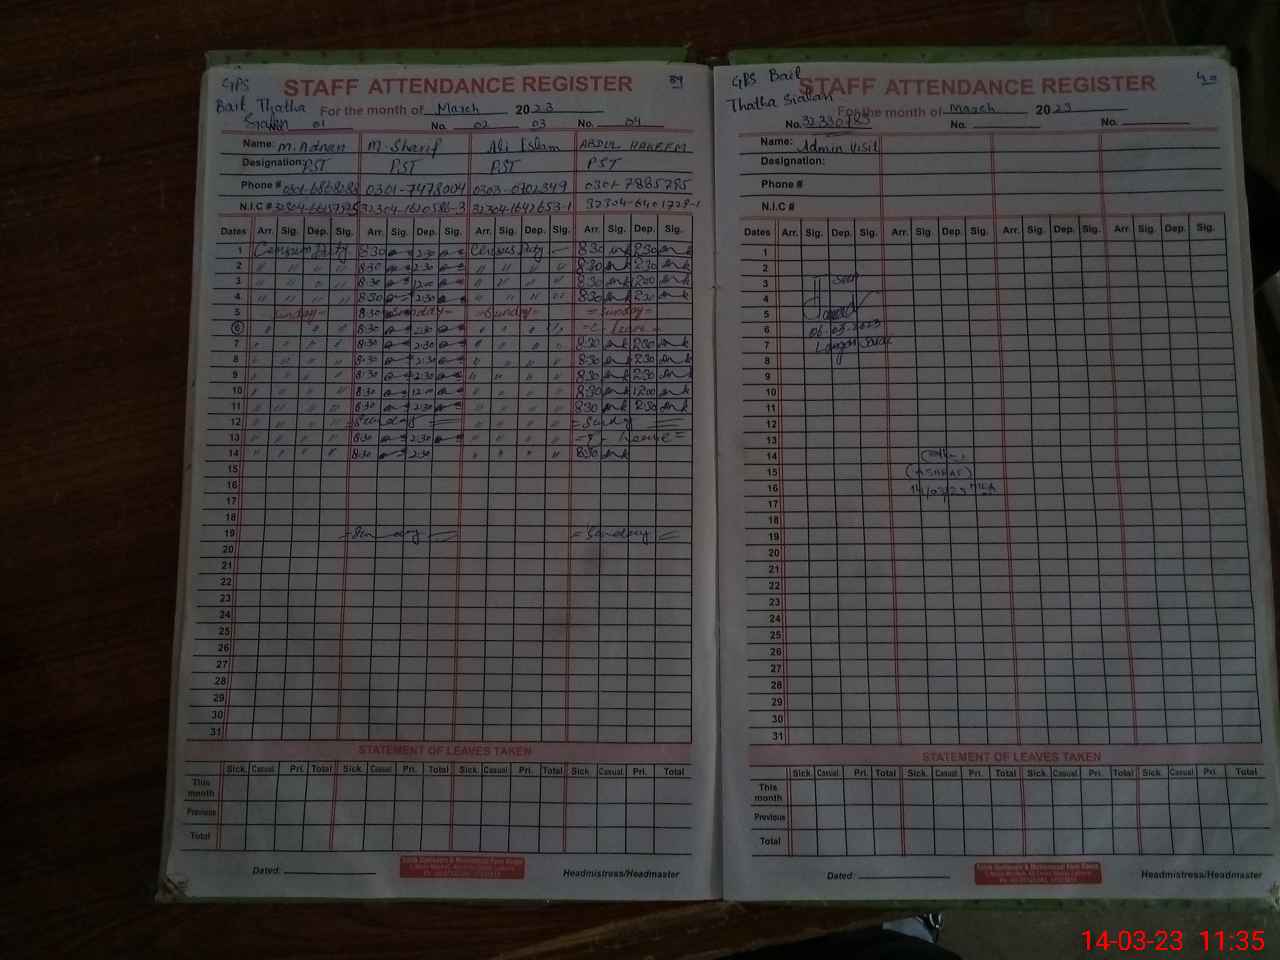 GPS
STAFF ATTENDANCE REGISTER
39
Bait Thatha
Sialan
For the month of March 2023
No. 01 No. 02 03 No. 04
Name: M. Adnan M. Sharif Ali Eslam ABDUL HAKEEM
Designation: PST PST PST PST
Phone # 0301-7478004 0303-0702349 0301-7885785
N.I.C # 32304-1620586-3 32304-1642653-1 32304-6401729-1
Dates Arr. Sig. Dep. Sig. Arr. Sig. Dep. Sig. Arr. Sig. Dep. Sig. Arr. Sig. Dep. Sig.
1 Census Duty 8:30 2:30 Census Duty 8:30 2:30
2 " " " " 8:30 2:30 " " " " 8:30 2:30
3 " " " " 8:30 12:00 " " " " 8:30 1200
4 " " " " 8:30 2:30 " " " " 8:30 230
5 Sunday = 8:30 Sunday = = Sunday = = Sunday =
6 " " " 8:30 2:30 " " " " Leave =
7 " " " " 8:30 2:30 " " " " 8:30 230
8 " " " " 8:30 2:30 " " " " 8:30 230
9 " " " " 8:30 2:30 " " " " 8:30 230
10 " " " " 8:30 12:00 " " " " 8:30 1200
11 " " " " 8:30 2:30 " " " " 8:30 230
12 " " " " = Sunday = " " " " = Sunday =
13 " " " " 8:30 2:30 " " " " Leave =
14 " " " " 8:30 2:30 " " " " 8:30
15
16
17
18
19 = Sunday = = Sunday =
20
21
22
23
24
25
26
27
28
29
30
31
STATEMENT OF LEAVES TAKEN
Sick. Casual Pri. Total Sick. Casual Pri. Total Sick. Casual Pri. Total Sick. Casual Pri. Total
This month
Previous
Total
Dated.
Headmistress/Headmaster
GPS Bait
STAFF ATTENDANCE REGISTER
40
Thatha Sialan
For the month of March 2023
No. No. No.
Name: Admin Visit
Designation:
Phone #
N.I.C #
Dates Arr. Sig. Dep. Sig. Arr. Sig. Dep. Sig. Arr. Sig. Dep. Sig. Arr. Sig. Dep. Sig.
1
2
3
4
5
6 06.03.2023
7
8
9
10
11
12
13
14
15
16 14/03/23
17
18
19
20
21
22
23
24
25
26
27
28
29
30
31
STATEMENT OF LEAVES TAKEN
Sick. Casual Pri. Total Sick. Casual Pri. Total Sick. Casual Pri. Total Sick. Casual Pri. Total
This month
Previous
Total
Dated.
Headmistress/Headmaster
14-03-23 11:35